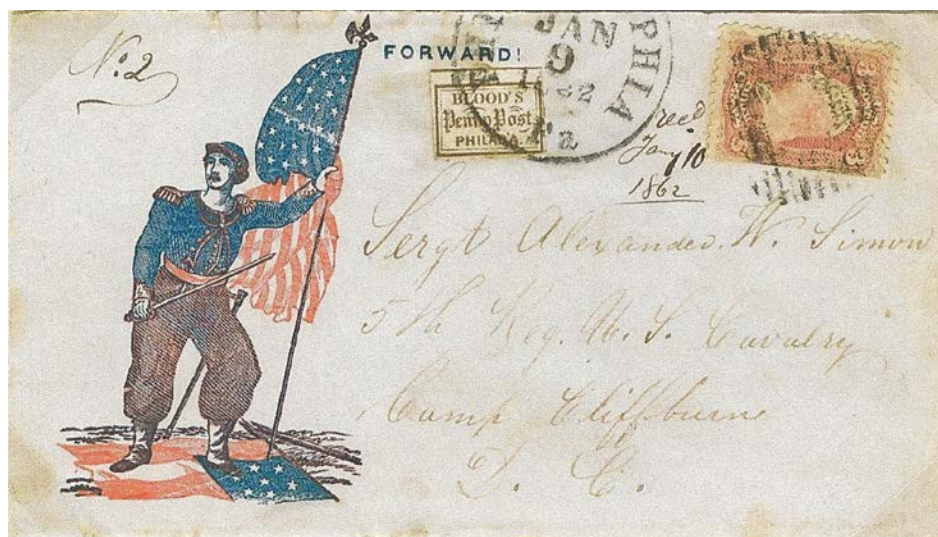 No. 2
FORWARD!
BLOOD'S
Penny Post
PHILADA.
JAN
9
PHIA
Pa
recd
Jany 10
1862
Sergt Alexander. W. Simon
5th Reg. U. S. Cavalry
Camp Cliffburne
D. C.